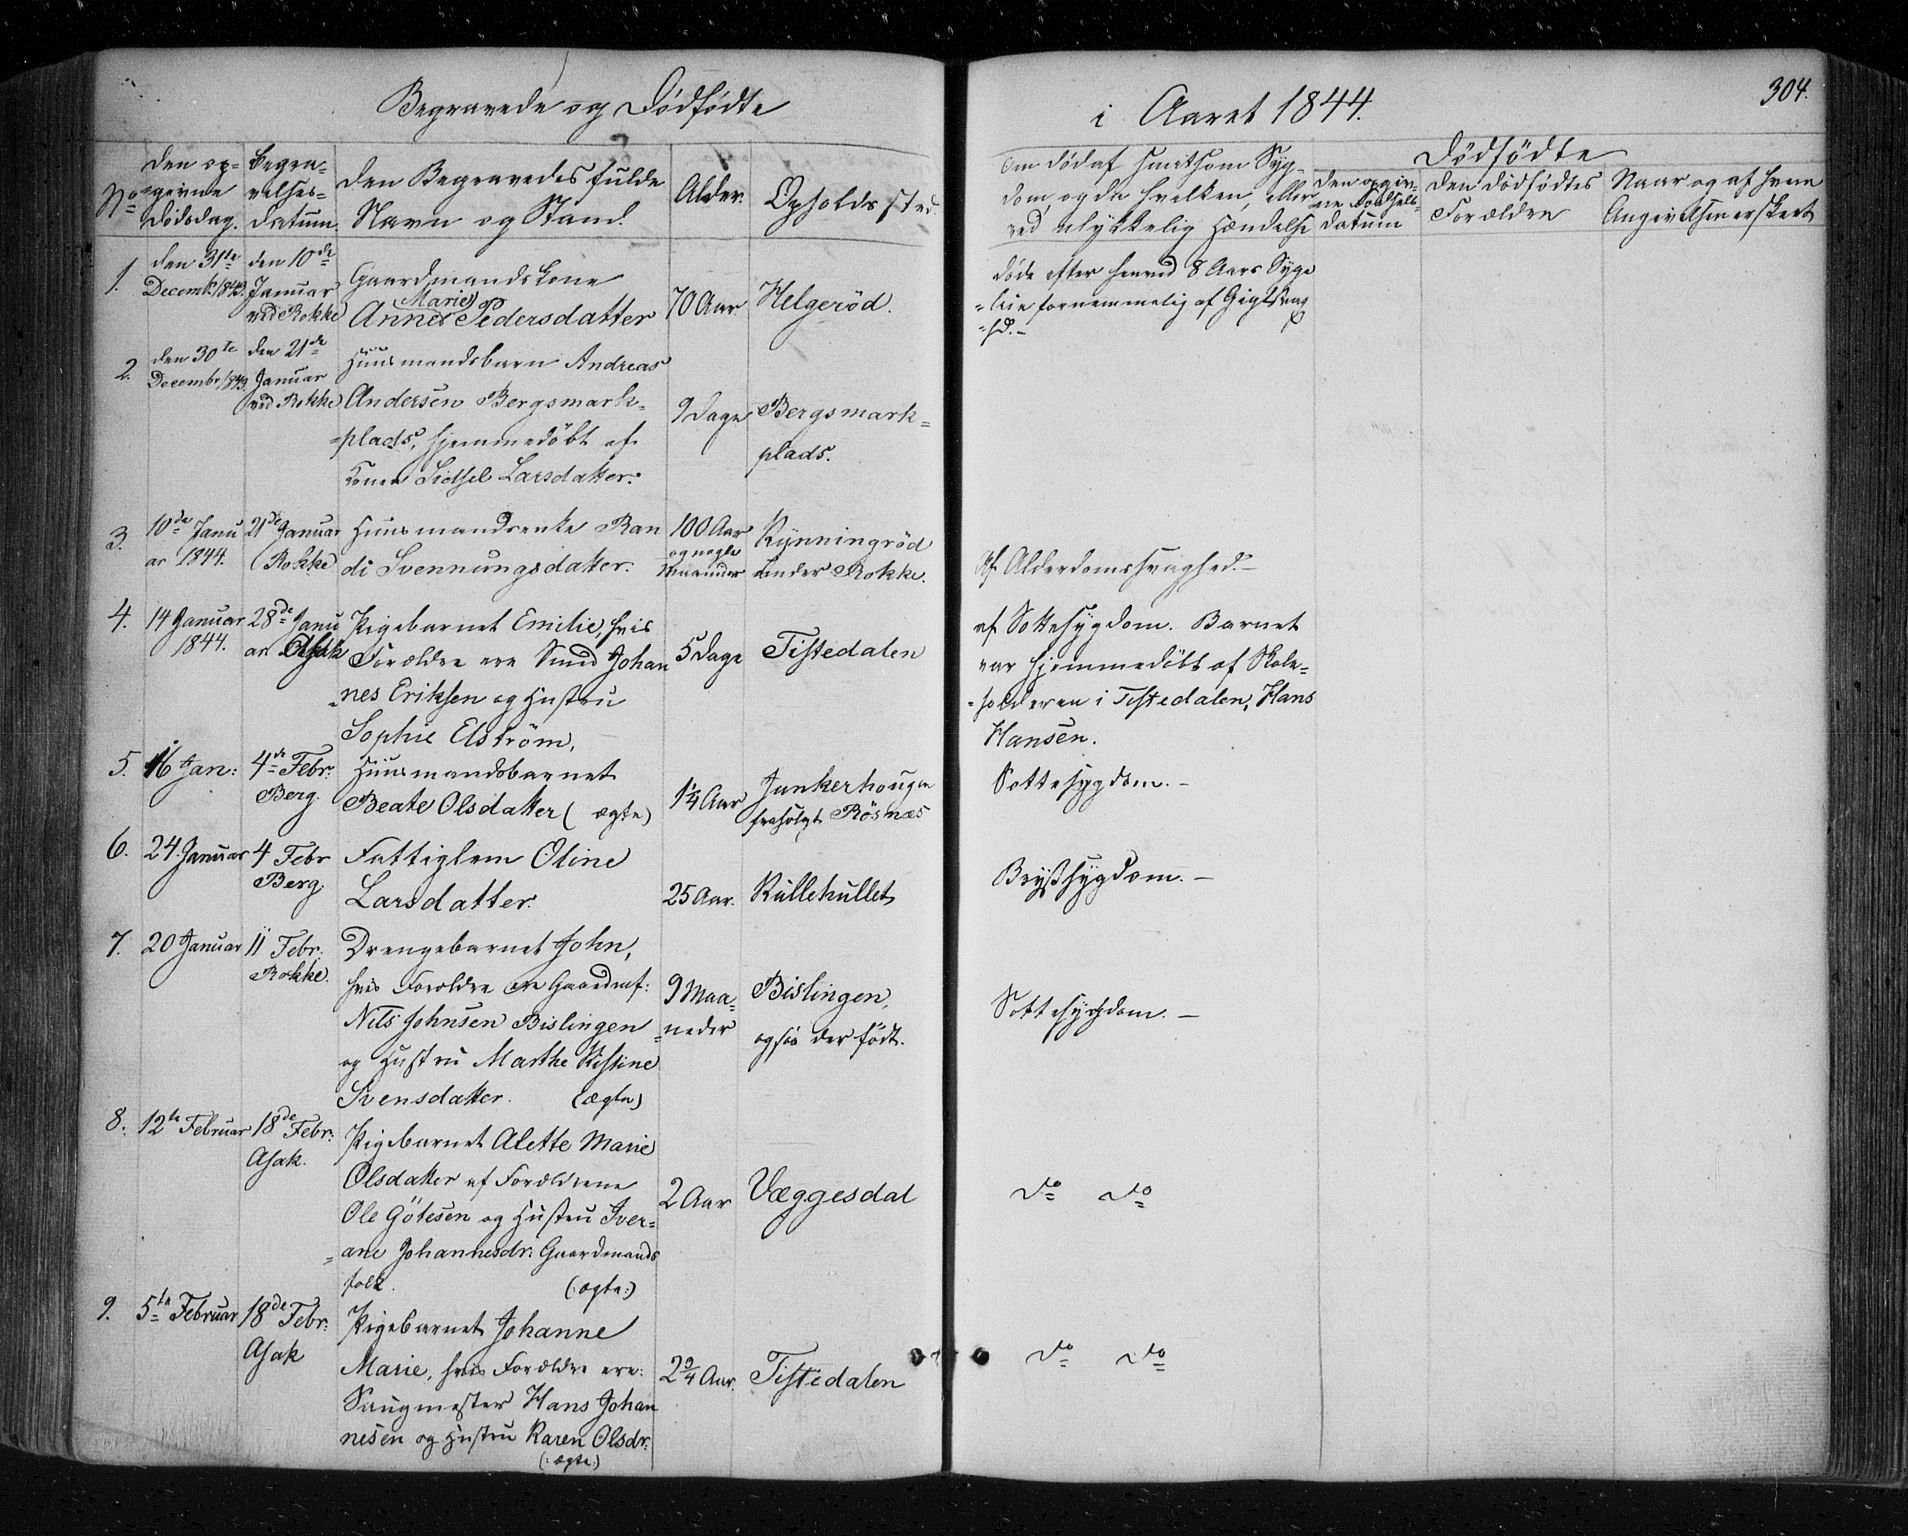 Begravede og Dödfödte
i Aaret 1844.
304.
No
Den op-
givne
Dödsdag.
Begra-
velses-
datum
Den Begravedes fulde
Navn og Stand.
Alder.
Opholds sted.
Om död af smitsom Syg-
dom og da hvilken, eller
ved ulykkelig Hændelse
Dödfödte
Den opgiv-
ne Födsels-
datum
Den dödfödtes
Forældre
Naar og af hvem
Angivelsen er skeet
1.
den 31te
Decemb. 1843.
den 10de
Januar
ved Rokke
Gaardmandskone
Anne (Marie) Pedersdatter
70 Aar
Helgeröd.
döde efter henved 8 Aars Syge
=leie fornemmelig af Gigtsvag
=hd.-
2.
den 30te
Decembr 1843.
den 21de
Januar
ved Rokke
Huusmandsbarn Andreas
Andersen Bergsmark-
=plads, hjemmedöbt af
Konen Sidsel Larsdatter.
9 Dage
Bergsmark=
plads.
3.
10de Janu
ar 1844.
21de Januar
(Rokke)
Huusmandsenke Ran
di Svennungsdatter.
100 Aar
og nogle
Maaneder
Rynningröd
under Rokke.
Af Alderdomssvaghed.-
4.
14 Januar
1844.
28de Janu
ar Asak
Pigebarnet Emilie, hvis
Forældre ere Smed Johan
=nes Eriksen og Hustru
Sophie Elström,
5 Dage
Tistedalen
af Sottesygdom. Barnet
var hjemmedöbt af Skole=
=holderen i Tistedalen, Hans
Hansen.
5.
16 Jan:
4de Febr:
Berg.
Huusmandsbarnet
Beate Olsdatter (ægte)
1 1/4 Aar
Junkerhougen
frasolgt Rösnæs
Sottesygdom.-
6.
24. Januar
4 Febr
Berg.
Fattiglem Oline
Larsdatter.
25 Aar.
Kullehullet
Brystsygdom.-
7.
20 Januar
11 Febr.
Rokke.
Drengebarnet John,
hvis Forældre ere Gaardmf:
Nils Johnsen Bislingen
og Hustru Marthe Kistine
Svensdatter. (ægte)
9 Maa=
=neder
Bislingen,
ogsaa der födt.
Sottesygdom.-
8.
12te Februar
18de Febr:
Asak.
Pigebarnet Alette Marie
Olsdatter af Forældrene
Ole Götesen og Hustru Iver=
=ane Johannesdr: Gaardmands
folk. (:ægte:)
2 Aar
Væggesdal
do do
9.
5te Februar
18de Febr:
Asak
Pigebarnet Johanne
Marie, hvis Forældre ere:
Saugmester Hans Johan
nesen og Hustru Karen Olsdr:
(:ægte:)
2 3/4 Aar.
Tistedalen
do do